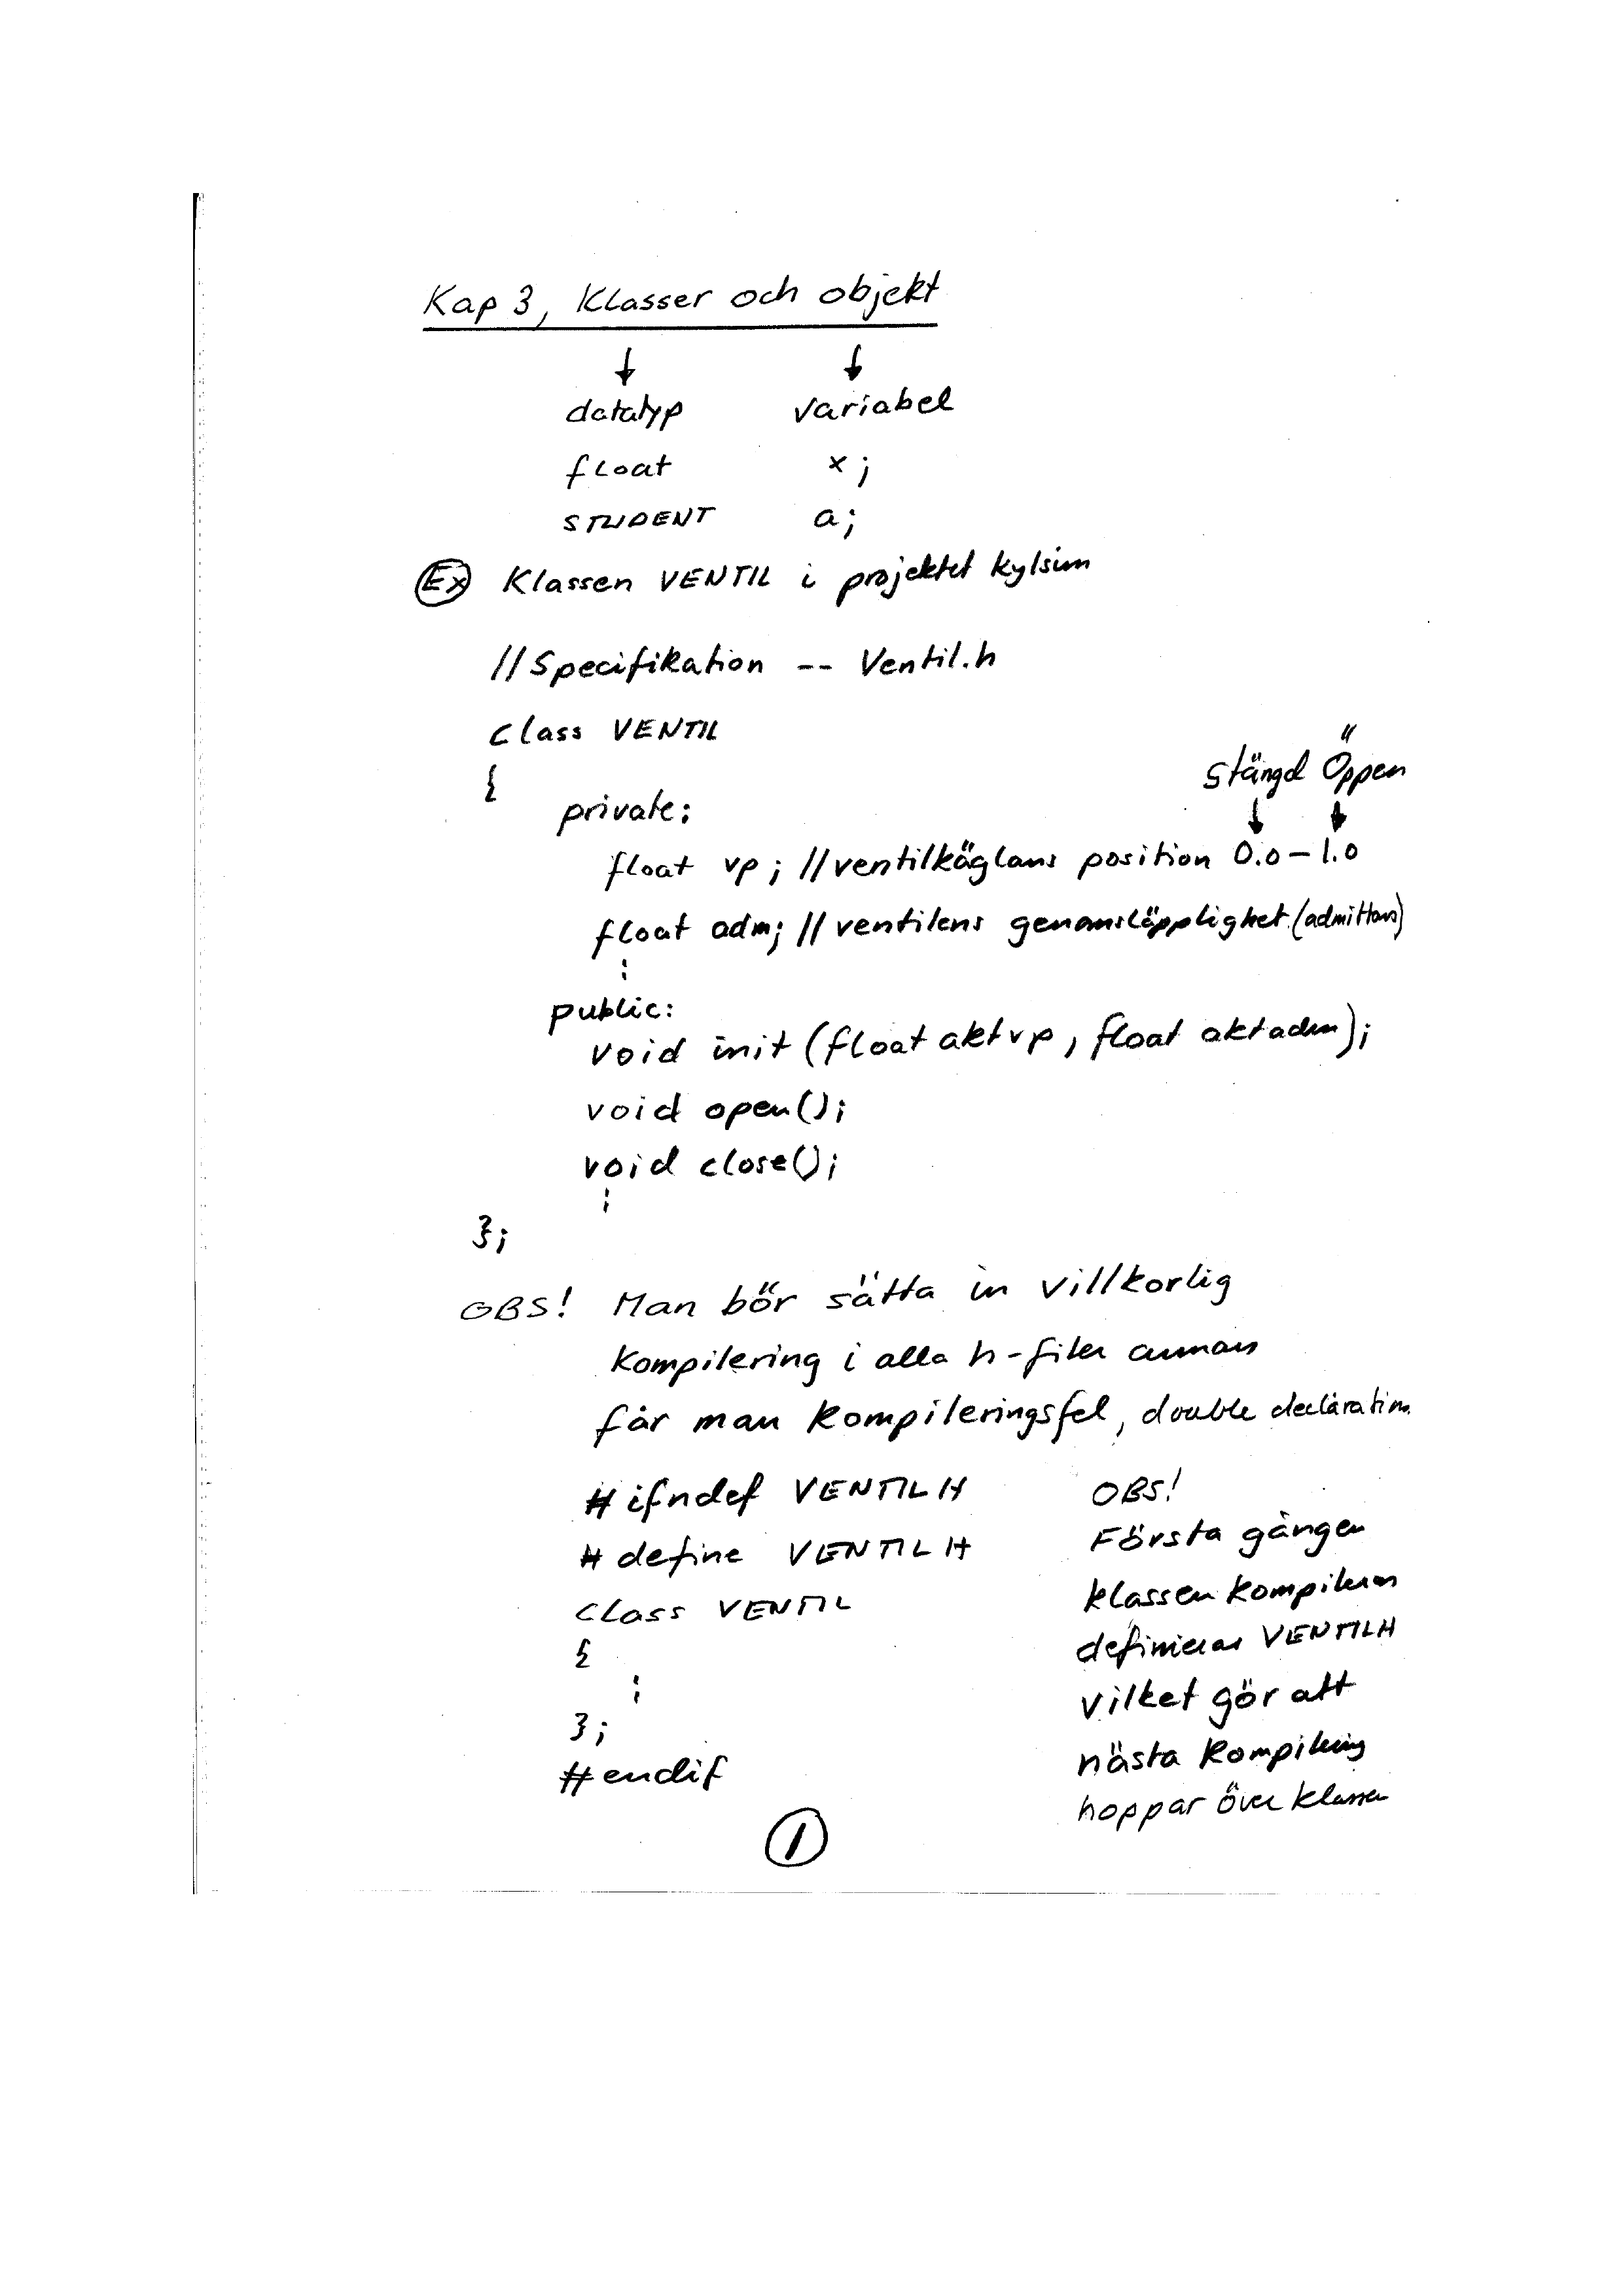 Kap 3, Klasser och objekt
datatyp variabel
float x;
STUDENT a;
Ex Klassen VENTIL i projektet kylsim
//Specifikation -- Ventil.h
class VENTIL
{
stängd Öppen
private:
float vp; //ventilkäglans position 0.0 – 1.0
float adm; // ventilens genomsläpplighet (admittans)
:
public:
void init (float aktvp, float aktadm);
void open();
void close();
:
};
OBS! Man bör sätta in villkorlig
kompilering i alla h-filer annars
får man kompileringsfel, double declaration.
#ifndef VENTILH
#define VENTILH
class VENTIL
{
:
};
#endif
OBS!
Första gången
klassen kompileras
definieras VENTILH
vilket gör att
nästa kompilering
hoppar över klassen
1